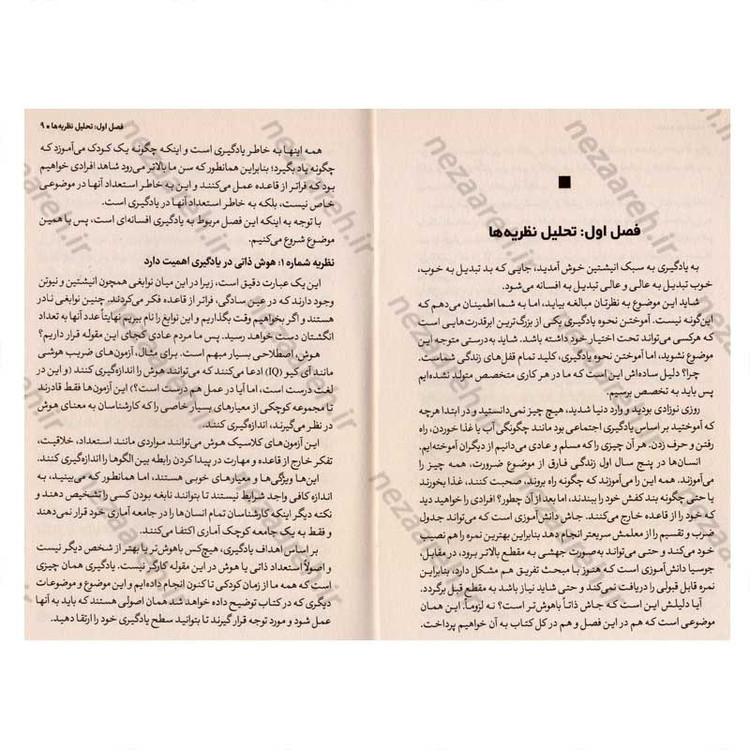 فصل اول: تحلیل نظریه‌ها
به یادگیری به سبک انیشتین خوش آمدید، جایی که بد تبدیل به خوب،
خوب تبدیل به عالی و عالی تبدیل به افسانه می‌شود.
شاید این موضوع به نظرتان مبالغه بیاید، اما به شما اطمینان می‌دهم که
این‌گونه نیست. آموختن نحوه یادگیری یکی از بزرگ‌ترین ابرقدرت‌هایی است
که هرکسی می‌تواند تحت اختیار خود داشته باشد. شاید به‌درستی متوجه این
موضوع نشوید، اما آموختن نحوه یادگیری، کلید تمام قفل‌های زندگی شماست.
چرا؟ دلیل ساده‌اش این است که ما در هر کاری متخصص متولد نشده‌ایم
پس باید به تخصص برسیم.
روزی نوزادی بودید و وارد دنیا شدید، هیچ چیز نمی‌دانستید و در ابتدا هرچه
که آموختید بر اساس یادگیری اجتماعی بود مانند چگونگی آب یا غذا خوردن، راه
رفتن و حرف زدن. هر آن چیزی را که مسلم و عادی می‌دانیم از دیگران آموخته‌ایم.
انسان‌ها در پنج سال اول زندگی فارق از موضوع ضرورت، همه چیز را
می‌آموزند. همه این را می‌آموزند که چگونه راه بروند، صحبت کنند، غذا بخورند
یا حتی چگونه بند کفش خود را ببندند، اما بعد از آن چطور؟ افرادی را خواهید دید
که خود را از قاعده خارج می‌کنند. جاش دانش‌آموزی است که می‌تواند جدول
ضرب و تقسیم را از معلمش سریعتر انجام دهد بنابراین بهترین نمره را هم نصیب
خود می‌کند و حتی می‌تواند به‌صورت جهشی به مقطع بالاتر برود، در مقابل،
جوسیا دانش‌آموزی است که هنوز با مبحث تفریق هم مشکل دارد، بنابراین
نمره قابل قبولی را دریافت نمی‌کند و حتی شاید نیاز باشد به مقطع قبل برگردد.
آیا دلیلش این است که جاش ذاتاً باهوش‌تر است؟ نه لزوماً. این همان
موضوعی است که هم در این فصل و هم در کل کتاب به آن خواهیم پرداخت.
فصل اول: تحلیل نظریه‌ها ■ ۹
همه اینها به خاطر یادگیری است و اینکه چگونه یک کودک می‌آموزد که
چگونه یاد بگیرد؛ بنابراین همانطور که سن ما بالاتر می‌رود شاهد افرادی خواهیم
بود که فراتر از قاعده عمل می‌کنند و این به خاطر استعداد آنها در موضوعی
خاص نیست، بلکه به خاطر استعداد آنها در یادگیری است.
با توجه به اینکه این فصل مربوط به یادگیری افسانه‌ای است، پس با همین
موضوع شروع می‌کنیم.
نظریه شماره ۱: هوش ذاتی در یادگیری اهمیت دارد
این یک عبارت دقیق است، زیرا در این میان نوابغی همچون انیشتین و نیوتن
وجود دارند که در عین سادگی، فراتر از قاعده فکر می‌کردند. چنین نوابغی نادر
هستند و اگر بخواهیم وقت بگذاریم و این نوابغ را نام ببریم نهایتاً عدد آنها به تعداد
انگشتان دست خواهد رسید. پس ما مردم عادی کجای این مقوله قرار داریم؟
هوش، اصطلاحی بسیار مبهم است. برای مثال، آزمون‌های ضریب هوشی
مانند آی کیو (IQ) ادعا می‌کنند که می‌توانند هوش را اندازه‌گیری کنند (و این در
لغت درست است، اما آیا در عمل هم درست است؟) این آزمون‌ها فقط قادرند
تا مجموعه کوچکی از معیارهای بسیار خاصی را که کارشناسان به معنای هوش
در نظر می‌گیرند، اندازه‌گیری کنند.
این آزمون‌های کلاسیک هوش می‌توانند مواردی مانند استعداد، خلاقیت،
تفکر خارج از قاعده و مهارت در پیدا کردن رابطه بین الگوها را اندازه‌گیری کنند.
این‌ها ویژگی‌ها و معیارهای خوبی هستند، اما همانطور که می‌بینید، به
اندازه کافی واجد شرایط نیستند تا بتوانند نابغه بودن کسی را تشخیص دهند و
نکته دیگر اینکه کارشناسان تمام انسان‌ها را در جامعه آماری خود قرار نمی‌دهند
و فقط به یک جامعه کوچک آماری اکتفا می‌کنند.
بر اساس اهداف یادگیری، هیچ‌کس باهوش‌تر یا بهتر از شخص دیگر نیست
و اصولاً استعداد ذاتی یا هوش در این مقوله کارگر نیست. یادگیری همان چیزی
است که همه ما از زمان کودکی تا کنون انجام داده‌ایم و این موضوع و موضوعات
دیگری که در کتاب توضیح داده خواهد شد همان اصولی هستند که باید به آنها
عمل شود و مورد توجه قرار گیرند تا بتوانید سطح یادگیری خود را ارتقا دهید.
nezaareh.ir